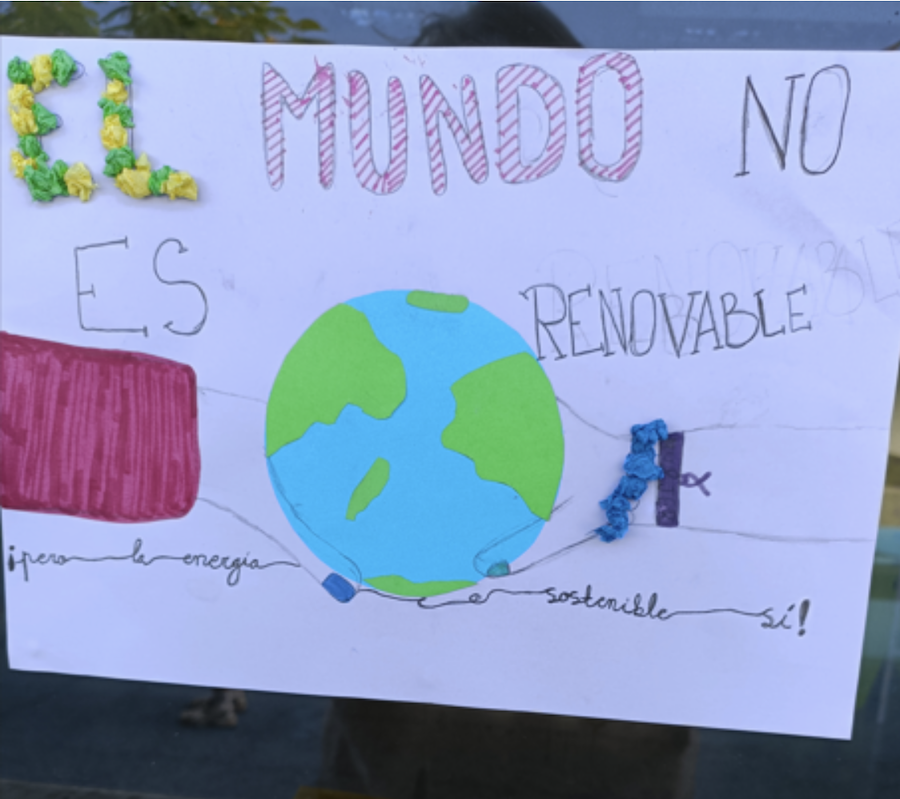 EL MUNDO NO
ES RENOVABLE
¡pero la energía sostenible sí!